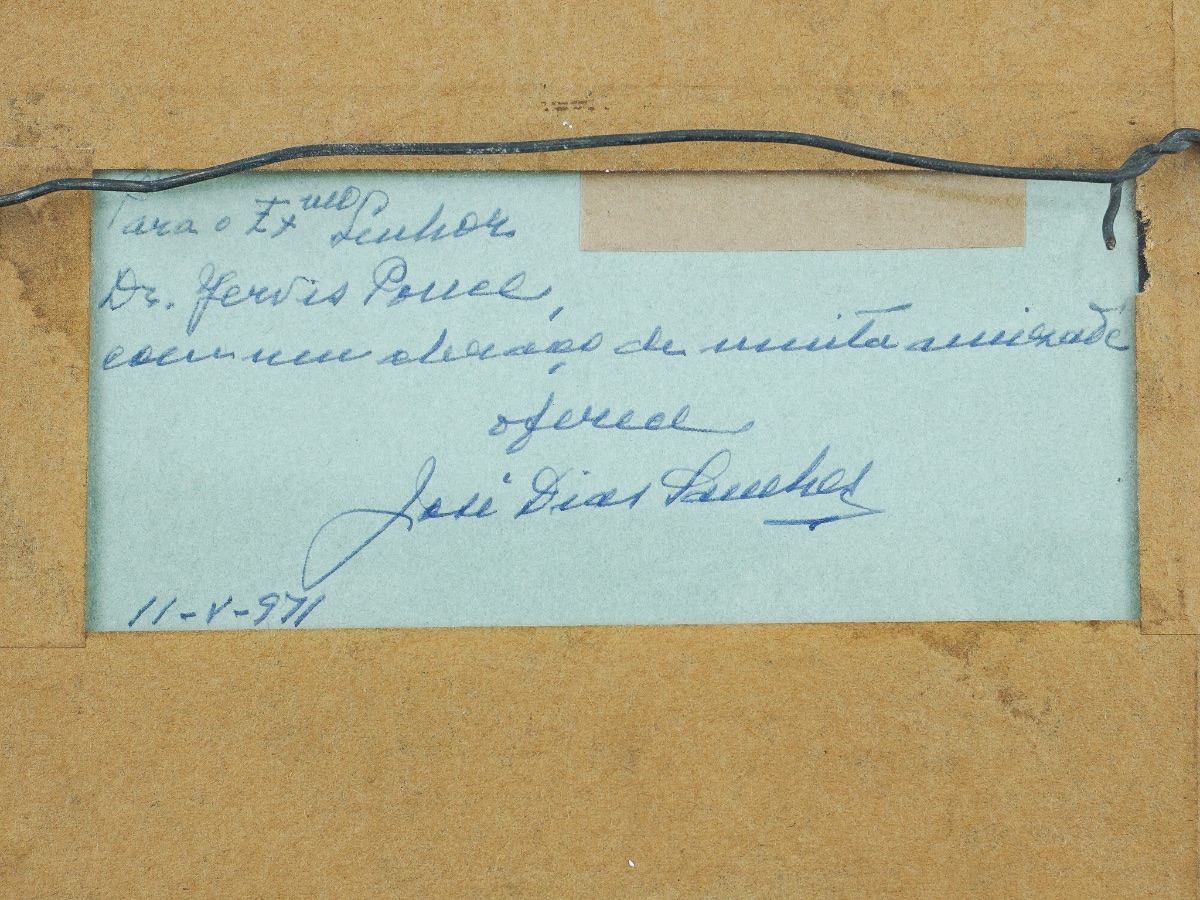 Para o Exmo Senhor
Dr. Jervis Ponce,
com um abraço de muita amizade
oferece
José Dias Sanches
11-V-971